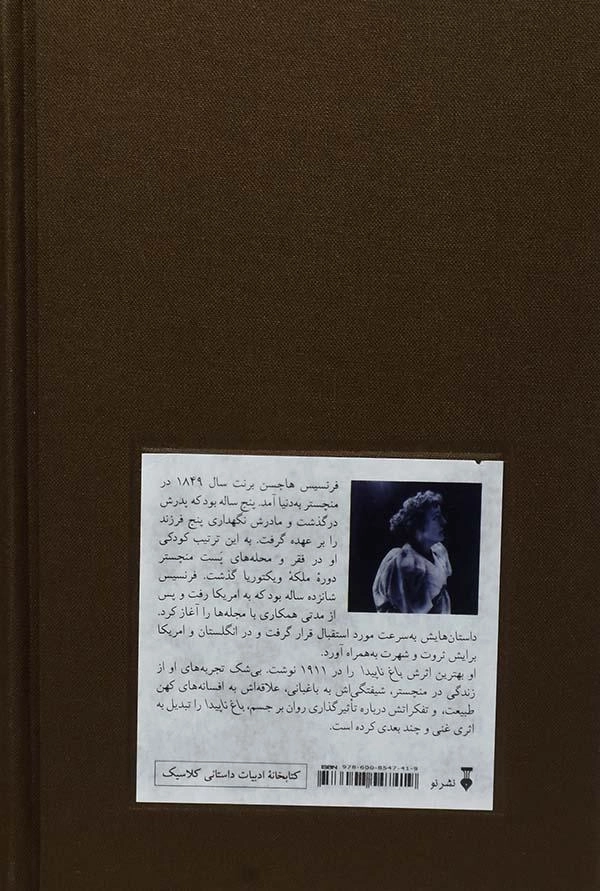 فرنسیس هاجسن برنت سال ۱۸۴۹ در
منچستر به‌دنیا آمد. پنج ساله بود که پدرش
درگذشت و مادرش نگهداری پنج فرزند
را بر عهده گرفت. به این ترتیب کودکی
او در فقر و محله‌های پَست منچستر
دورهٔ ملکهٔ ویکتوریا گذشت. فرنسیس
شانزده ساله بود که به امریکا رفت و پس
از مدتی همکاری با مجله‌ها را آغاز کرد.
داستان‌هایش به‌سرعت مورد استقبال قرار گرفت و در انگلستان و امریکا
برایش ثروت و شهرت به‌همراه آورد.
او بهترین اثرش باغ ناپیدا را در ۱۹۱۱ نوشت. بی‌شک تجربه‌های او از
زندگی در منچستر، شیفتگی‌اش به باغبانی، علاقه‌اش به افسانه‌های کهن
طبیعت، و تفکراتش درباره تأثیرگذاری روان بر جسم، باغ ناپیدا را تبدیل به
اثری غنی و چند بعدی کرده است.
نشرنو
ISBN 978-600-8547-41-9
کتابخانهٔ ادبیات داستانی کلاسیک